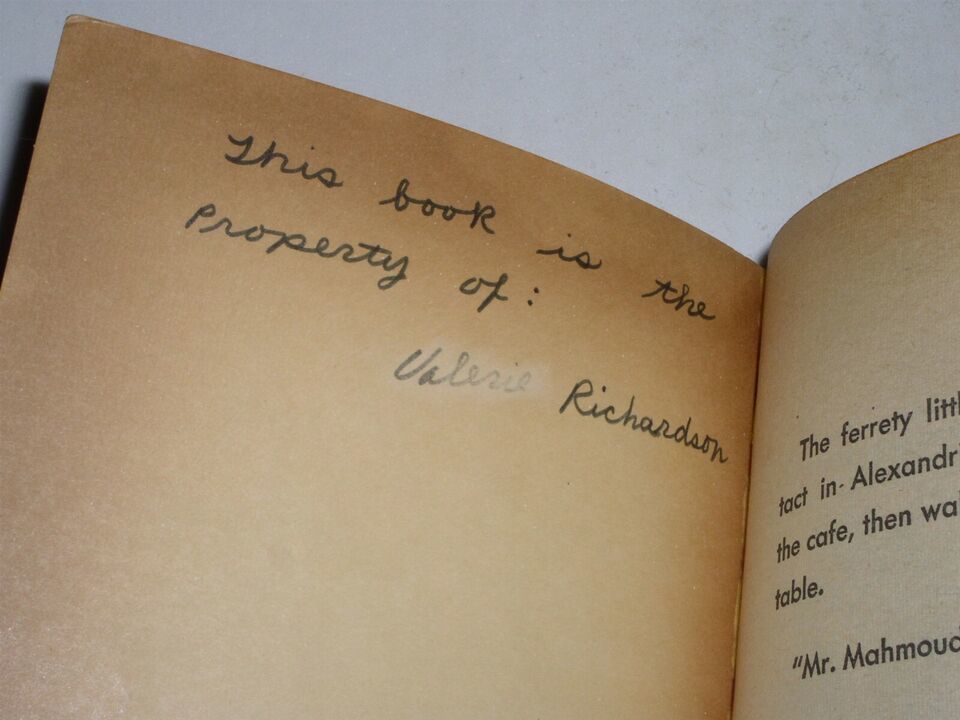 This book is the
Property of:
Valerie Richardson
The ferrety
tact in Alexandr
the cafe, then
table.
"Mr. Mahmoud